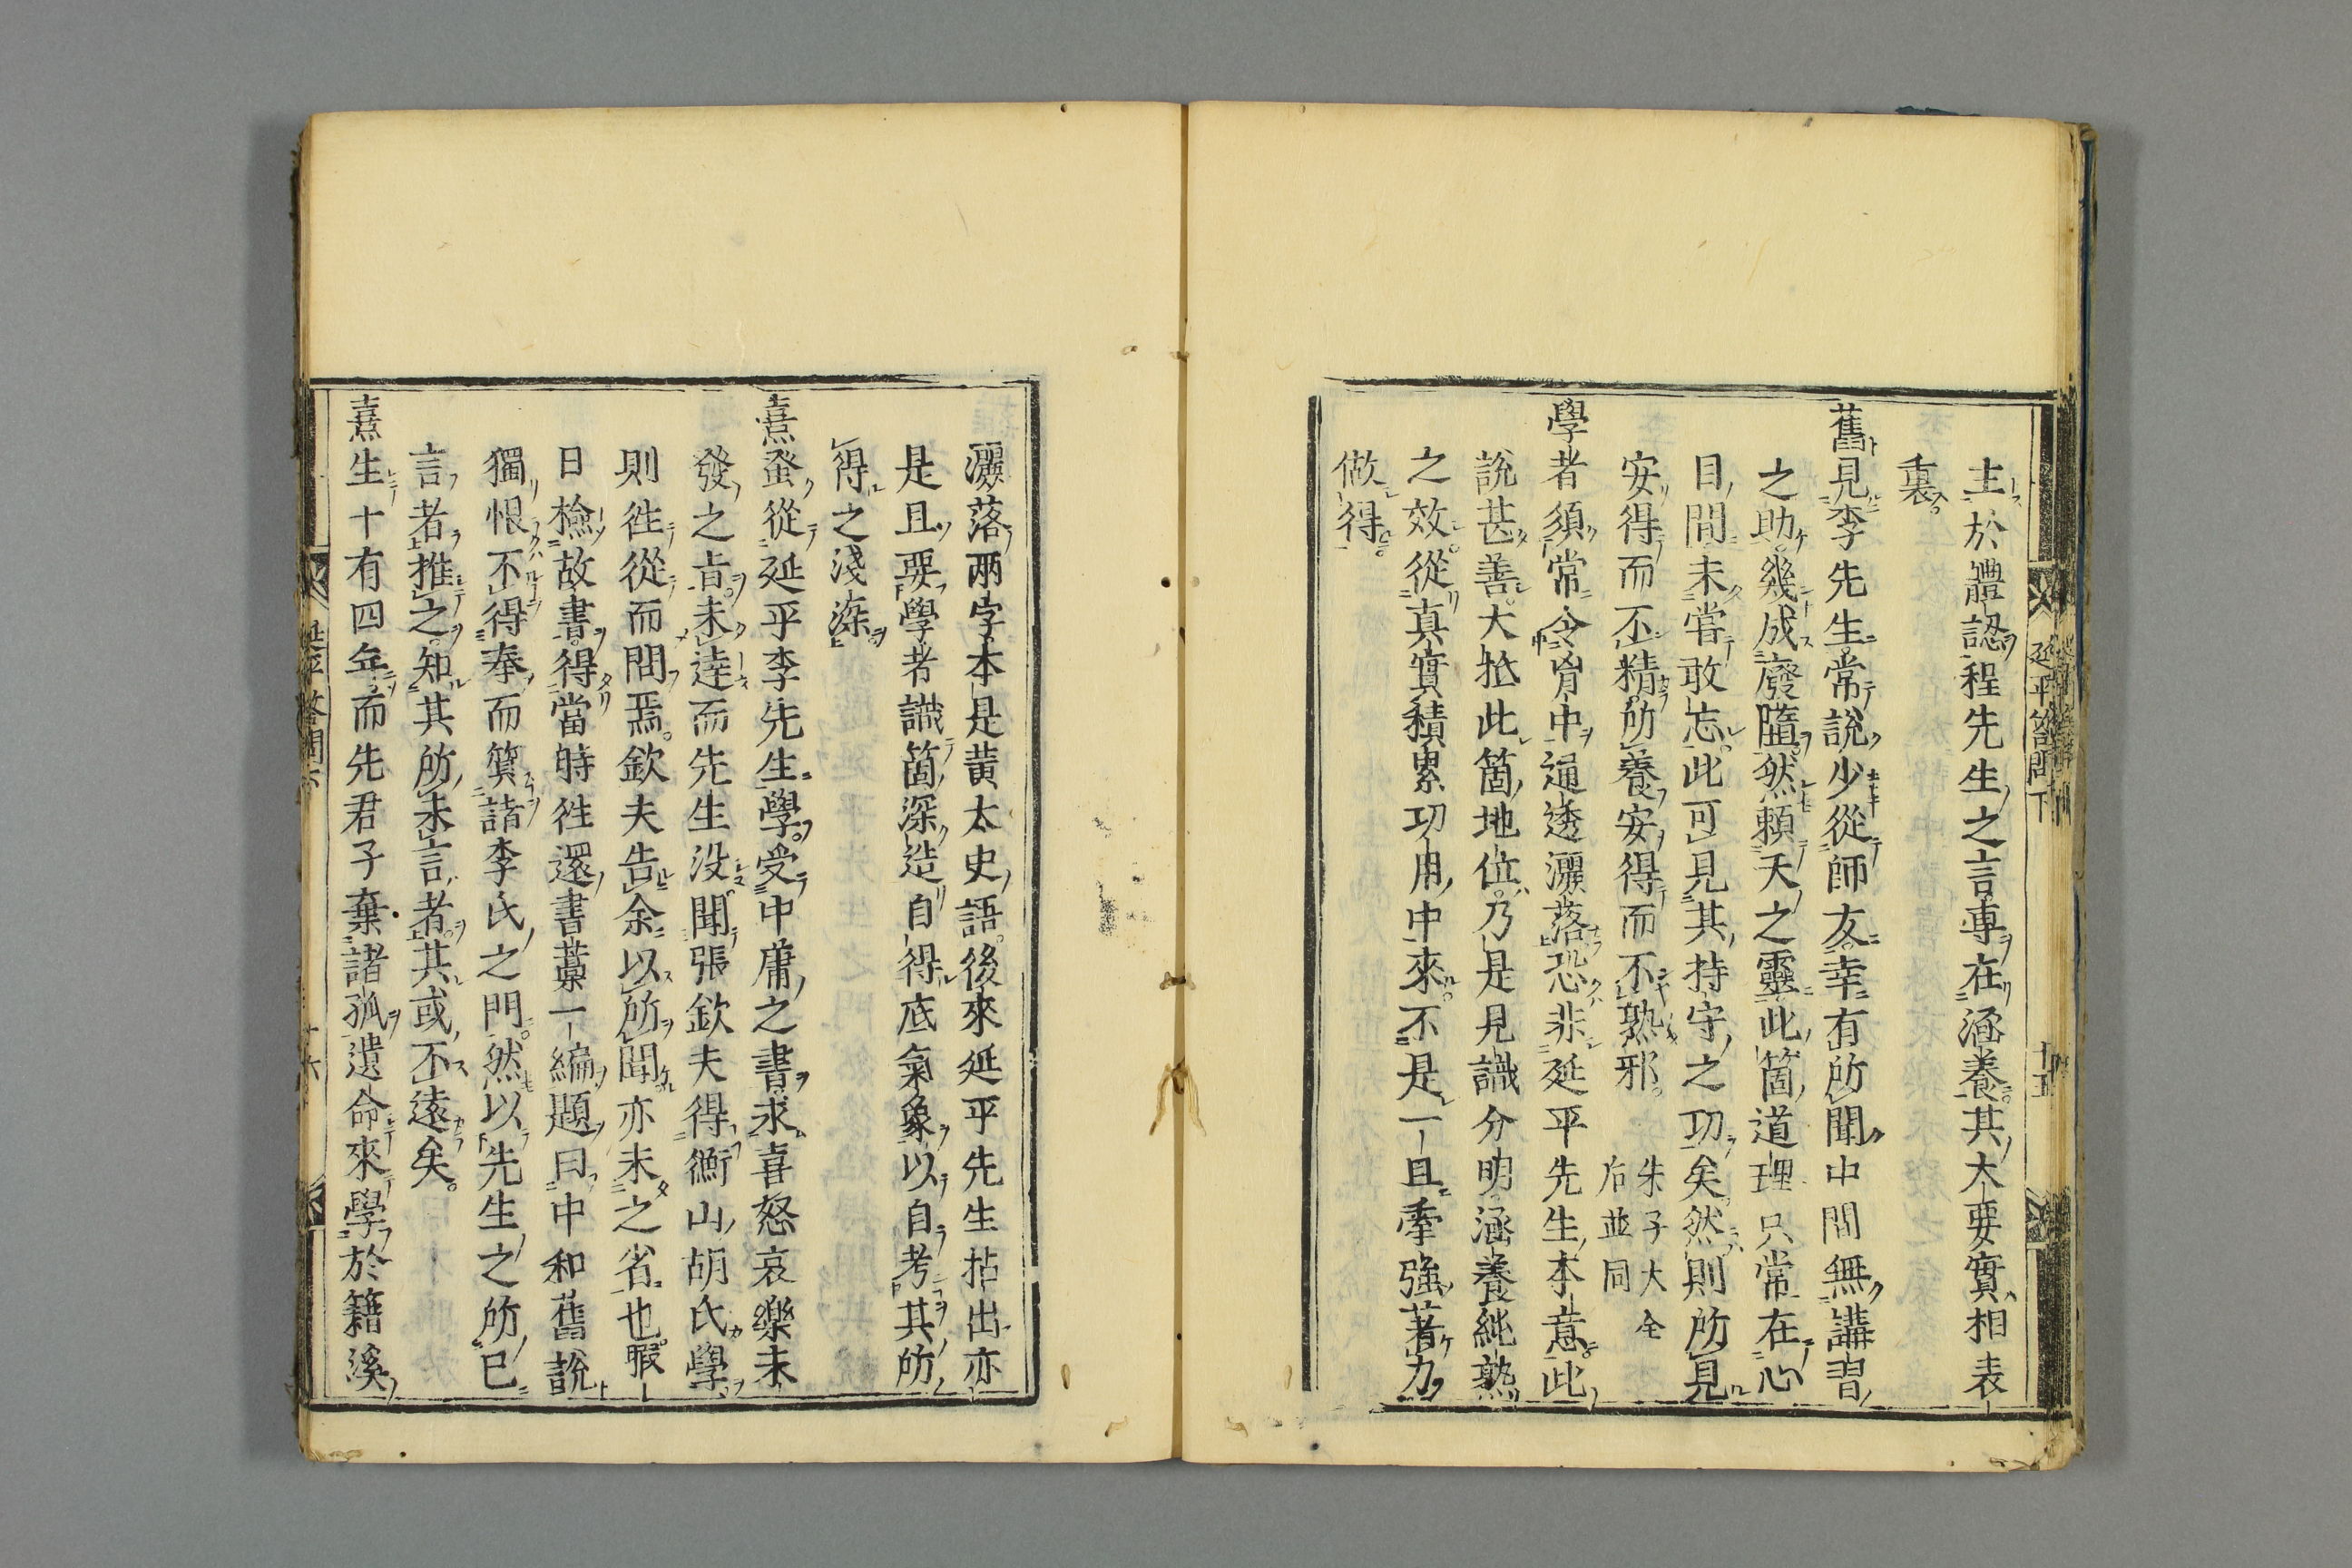 延平答問下
十五
主於體認程先生之言專在涵養其大要實相表
裏
舊見李先生常說少從師友幸有所聞中間無講習
之助幾成廢隨然頼天之靈此箇道理只常在心
目間未嘗敢忘此可見其持守之功矣然則所見
安得而不精所養安得而不熟邪朱子大全
后並同
學者須常令胷中通透灑落恐非延平先生本意此
說甚善大抵此箇地位乃是見識分明涵養純熟
之效從真實積累功用中來不是一旦牽強著力
做得
灑落兩字本是黄太史語後來延平先生拈出亦
是且要學者識箇深造自得底氣象以自考其所
得之淺深
熹蚤從延平李先生學受中庸之書求喜怒哀樂未
發之旨未達而先生没聞張欽夫得衡山胡氏學
則徃從而問焉欽夫告余以所聞亦未之省也暇
日檢故書得當時徃還書藁一編題曰中和舊說
獨恨不得奉而質諸李氏之門然以先生之所已
言者推之知其所未言者其或不遠矣
熹生十有四年而先君子棄諸孤遺命來學於籍溪
延平答問下
十六